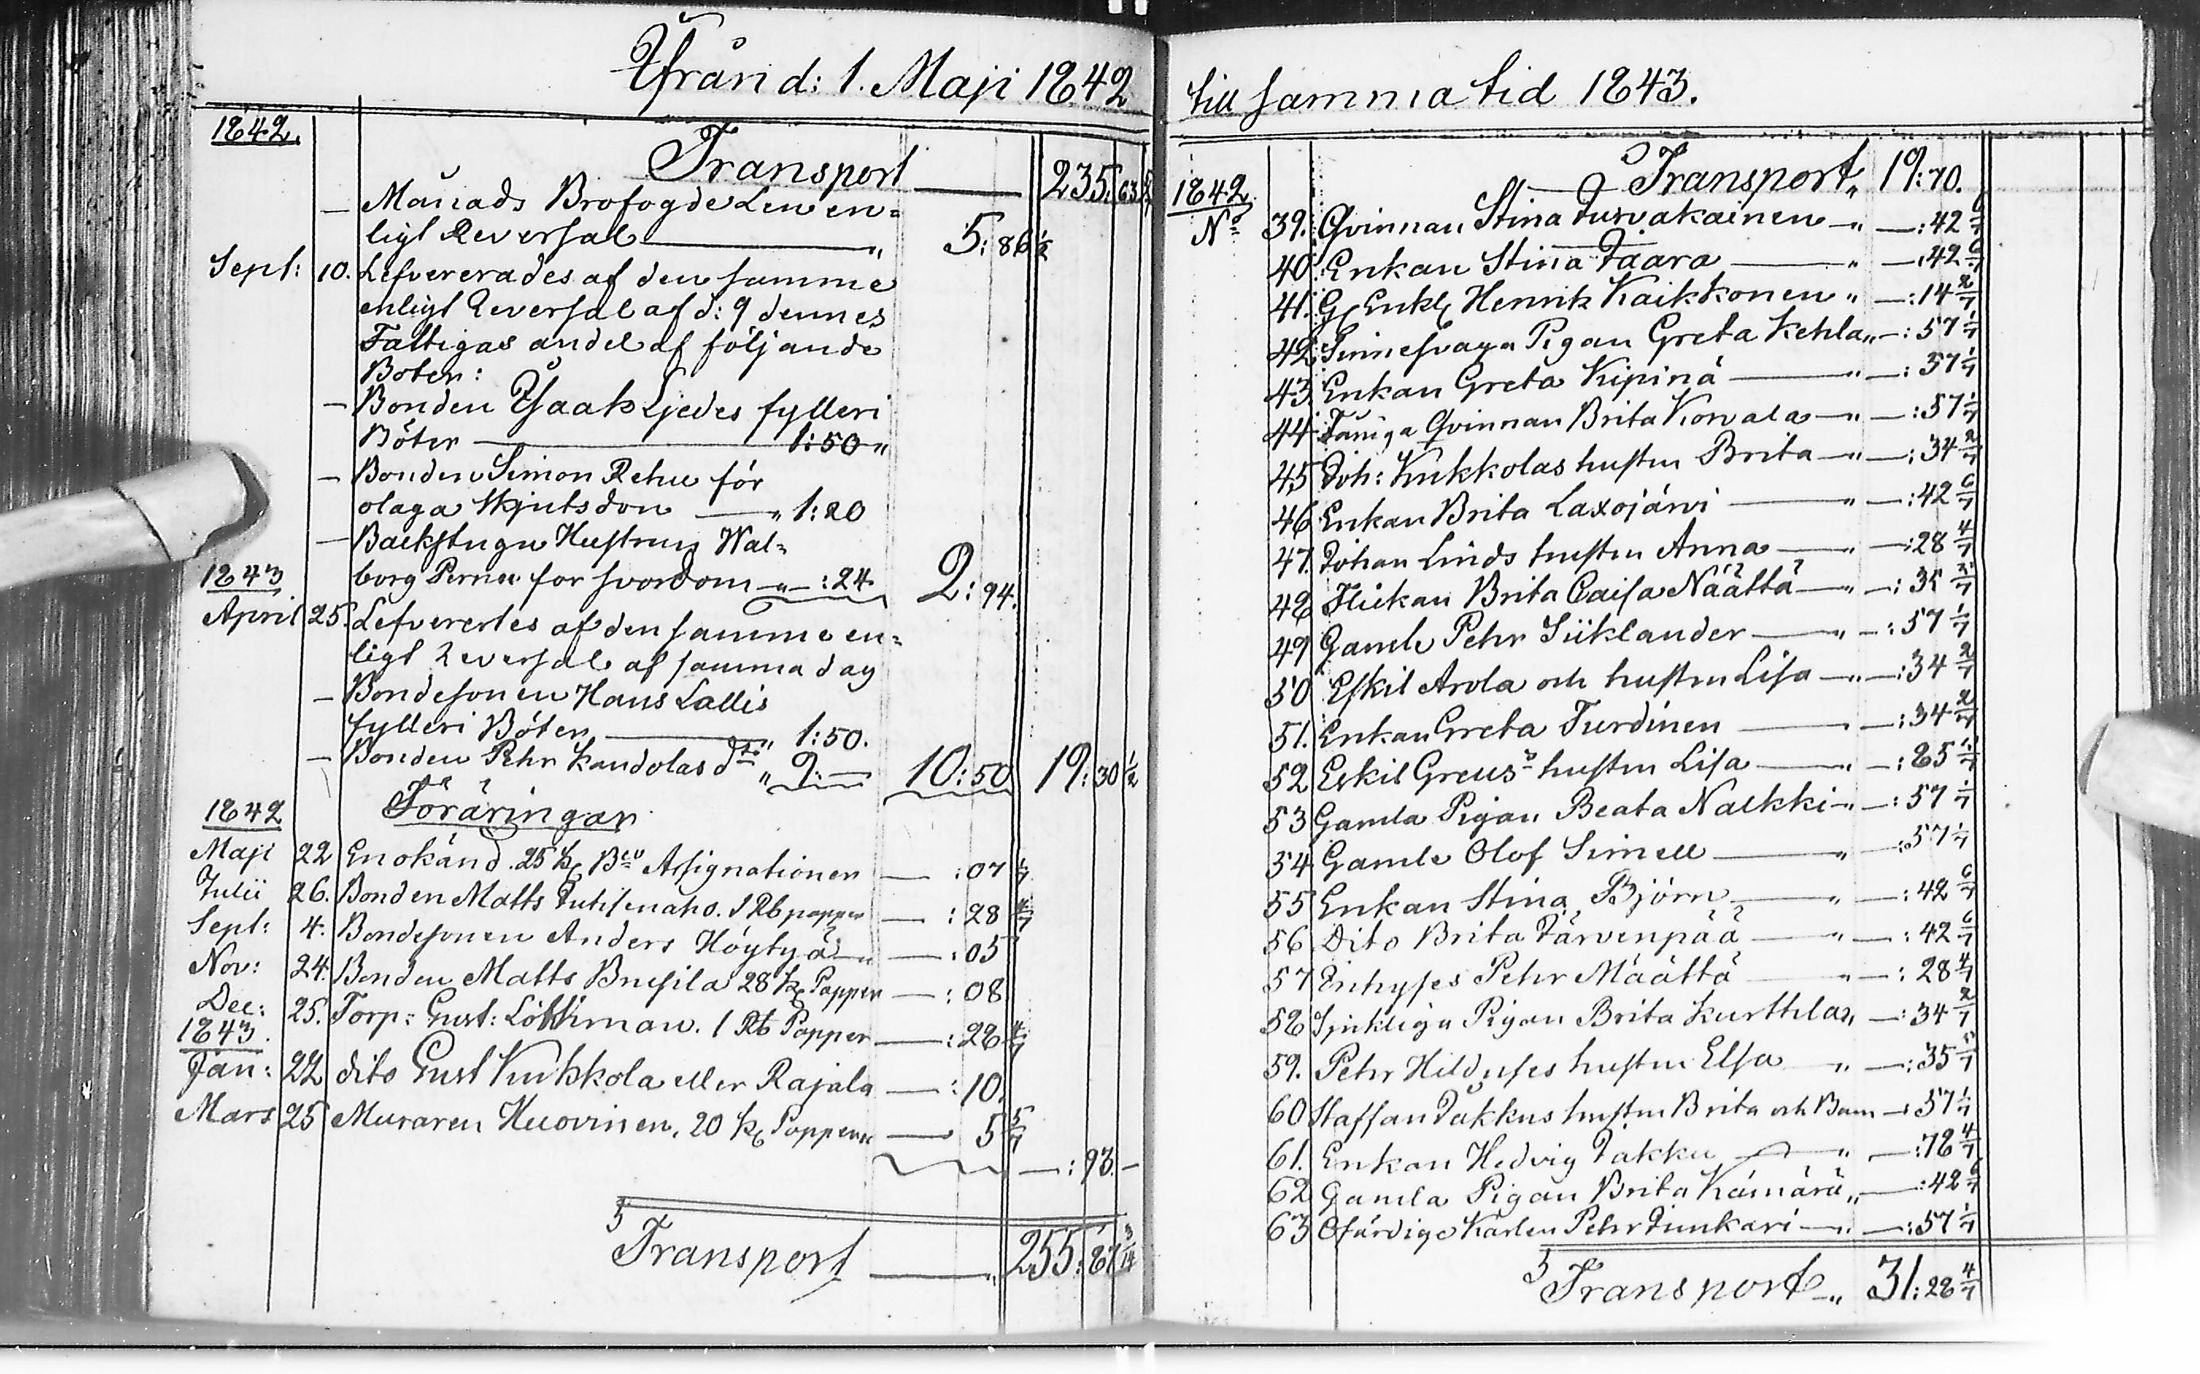 Ifrån d: 1. Maji 1842
1842.
Transport — 235. 63
— Månads Brofogde Lew en=
ligt Reversal — " 5: 86 1/2
Sept: 10. Lefvererades af den samme
enligt Reversal af d: 9 dennes
Fattigas andel af följande
Böter:
— Bonden Isaak Ljedes fylleri
Böter — 1:50 "
— Bonden Simon Rehu för
olaga Skjutsdon — " 1:20
— Backstugu Hustrun Wal=
1843
borg Pernu for svordom — " — :24 2: 94.
April 25. Lefvererdes af den samme en=
ligt Reversal af samma dag
— Bondesonen Hans Lallis
fylleri Böter — " 1:50.
— Bonden Pehr Kandolas dto " 9: — 10:50 19: 30 1/2
1842
Föräringar
Maji 22 En okänd 25 k Bco Assignationer — :07 1/7
Julii 26. Bonden Matts 1 Rb papper — :28 4/7
Sept: 4. Bondesonen Anders Höytyä — " — :05
Nov: 24. Bonden Matts Brusila 28 k Papper — :08
Dec: 25. Torp: Gust: Löthman. 1 Rb Papper — :28 4/7
1843.
Jan: 22 dito Gust Kukkola eller Rajala — :10.
Mars 25 Muraren Huovinen, 20 k Papper " — 5 5/7
— :93. —
Transport — " 255: 87 3/14
till samma tid 1843.
Transport " 19:70.
1842
No 39. Qvinnan Stina Turvakainen — " — :42 6/7
40. Enkan Stina Jaara — " — :42 6/7
41. G Enkl Henrik Kaikkonen " — :14 2/7
42. Sinnesvaga Pigan Greta Kehla " — :57 1/7
43. Enkan Greta Kipinä — " — :57 1/7
44. Qvinnan Brita Korvala — " — :57 1/7
45. Joh: Kukkolas hustru Brita — " — :34 2/7
46. Enkan Brita Laxojärvi — " — :42 6/7
47. Johan Linds hustru Anna — " — :28 4/7
48. Flickan Brita Caisa Näättä — " — :35 5/7
49 Gamle Pehr Siiklander — " — :57 1/7
50 Eskil Arola och hustru Lisa — " — :34 2/7
51. Enkan Greta Turdinen — " — :34 2/7
52 Eskil Greus's hustru Lisa — " — :85 5/7
53 Gamla Pigan Beata Nalkki — " — :57 1/7
54 Gamle Olof Simell — " — :57 1/7
55 Enkan Stina Björn — " — :42 6/7
56 Dito Brita Järvenpää — " — :42 6/7
57 Inhyses Pehr Määttä — " — :28 4/7
58 Sjukliga Pigan Brita Kurthila " — :34 2/7
59. Pehr Hildéns hustru Elsa " — :35 5/7
60 Staffan Jakkus hustru Brita och Barn — :57 1/7
61. Enkan Hedvig Jakku — " — :78 4/7
62 Gamla Pigan Brita Kämärä " — :42 6/7
63 Ofärdige Karlen Pehr Junkari — " — :57 1/7
Transport — " 31:28 4/7